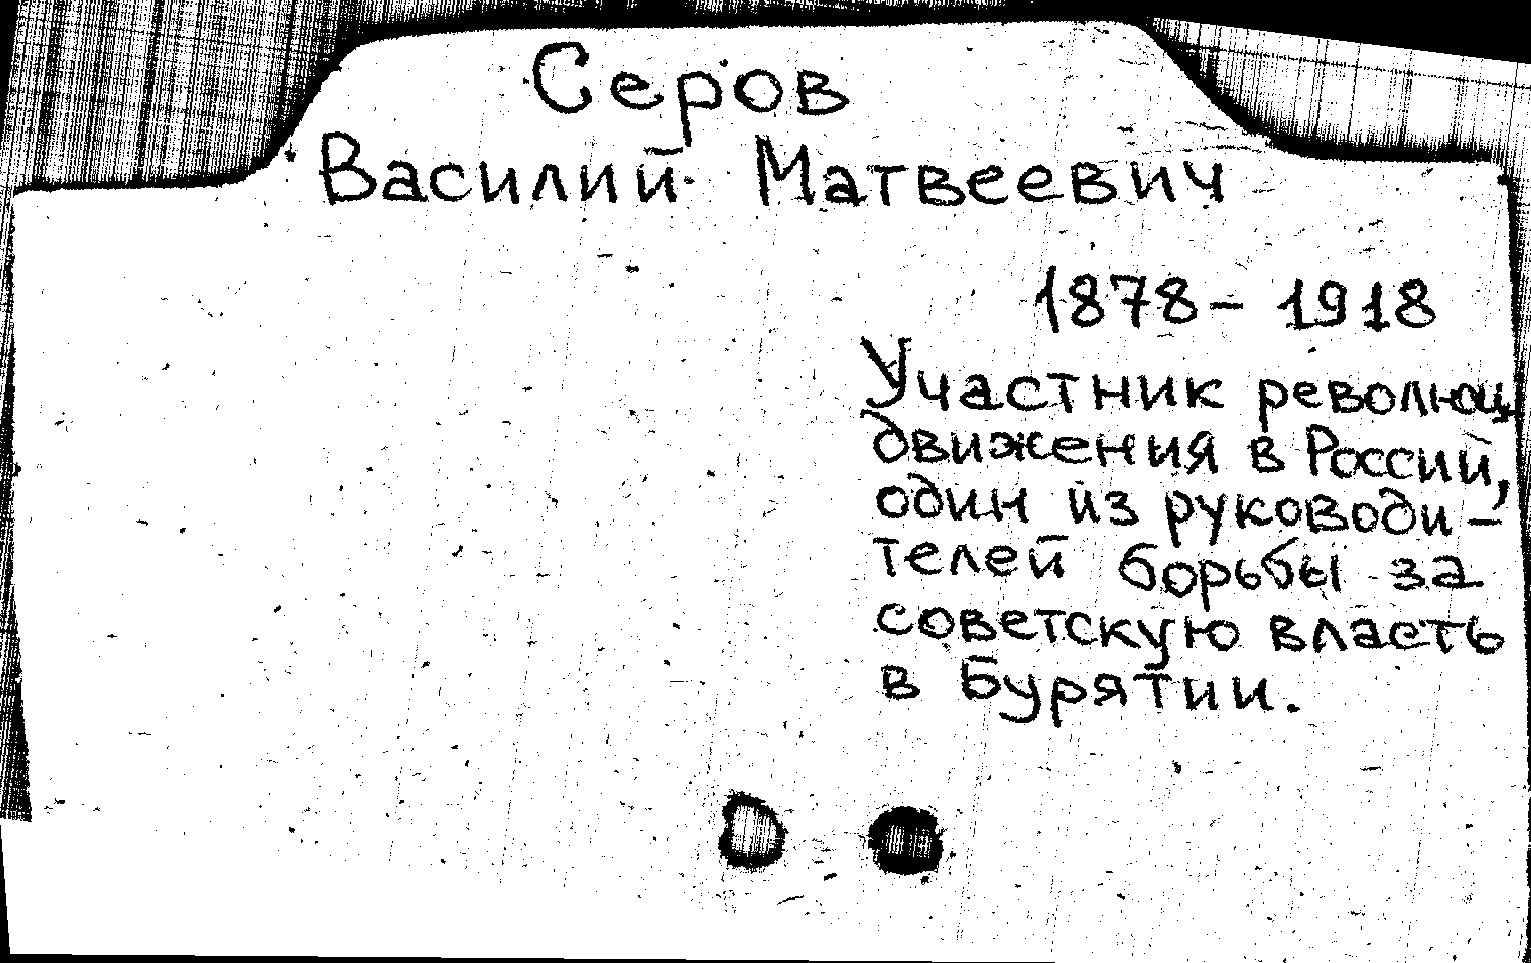 Серов
Василий Матвеевич
1878 - 1918
Участник революц.
движения в России,
один из руководи-
телей борьбы за
советскую власть
в Бурятии.